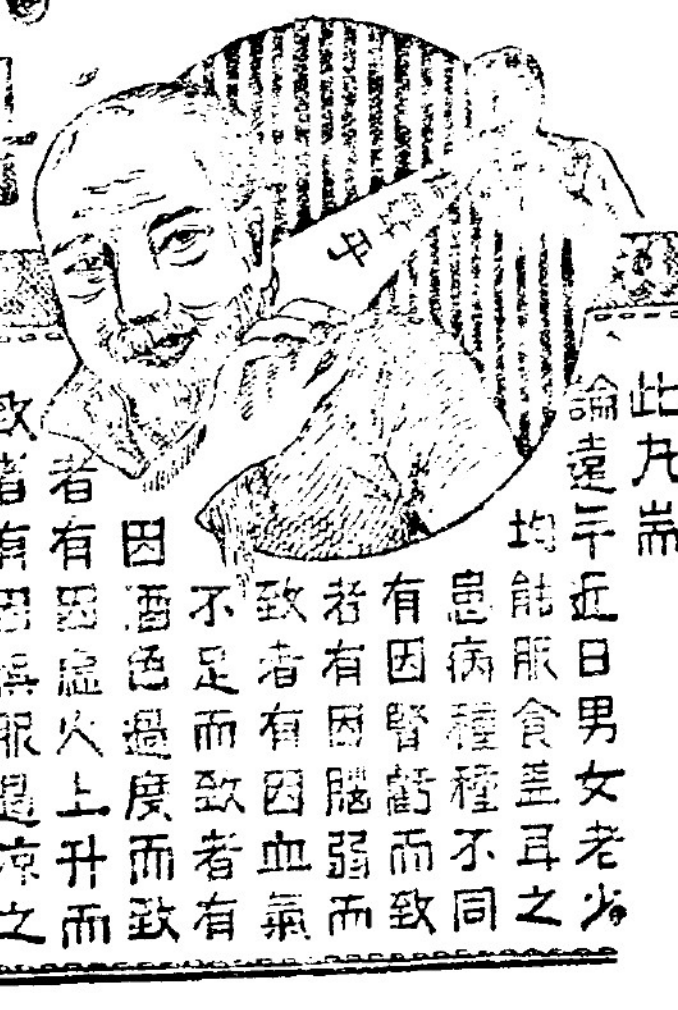 此丸耑
論遠年近日男女老少
均能服食盖耳之
患病種種不同
有因腎虧而致
者有因腦弱而
致者有因血氣
不足而致者有
因酒色過度而致
者有因虛火上升而
致者有因誤服過凉之